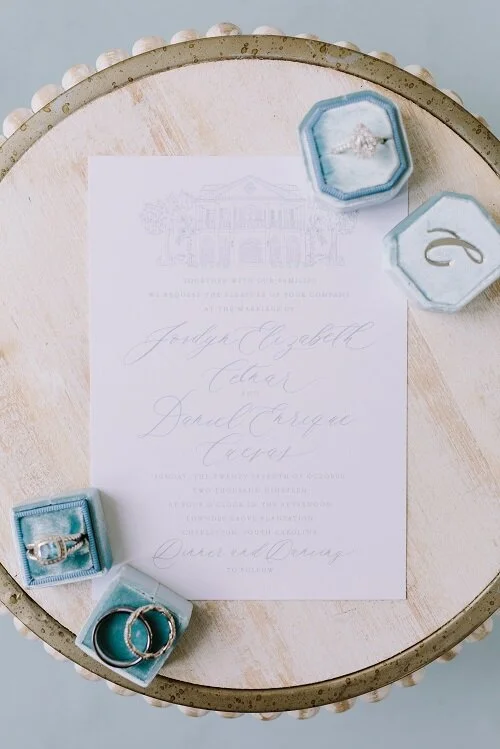 TOGETHER WITH OUR FAMILIES
WE REQUEST THE PLEASURE OF YOUR COMPANY
AT THE MARRIAGE OF
Jordyn Elizabeth
Cetnar
AND
Daniel Enrique
Cuevas
SUNDAY, THE TWENTY SEVENTH OF OCTOBER
TWO THOUSAND NINETEEN
AT FOUR O'CLOCK IN THE AFTERNOON
LOWNDES GROVE PLANTATION
CHARLESTON, SOUTH CAROLINA
Dinner and Dancing
TO FOLLOW
C